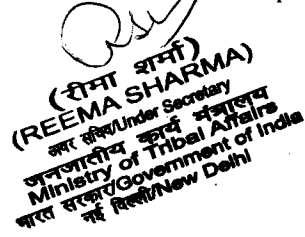 (रीमा शर्मा)
(REEMA SHARMA)
अवर सचिव/Under Secretary
जनजातीय कार्य मंत्रालय
Ministry of Tribal Affairs
भारत सरकार/Government of India
नई दिल्ली/New Delhi